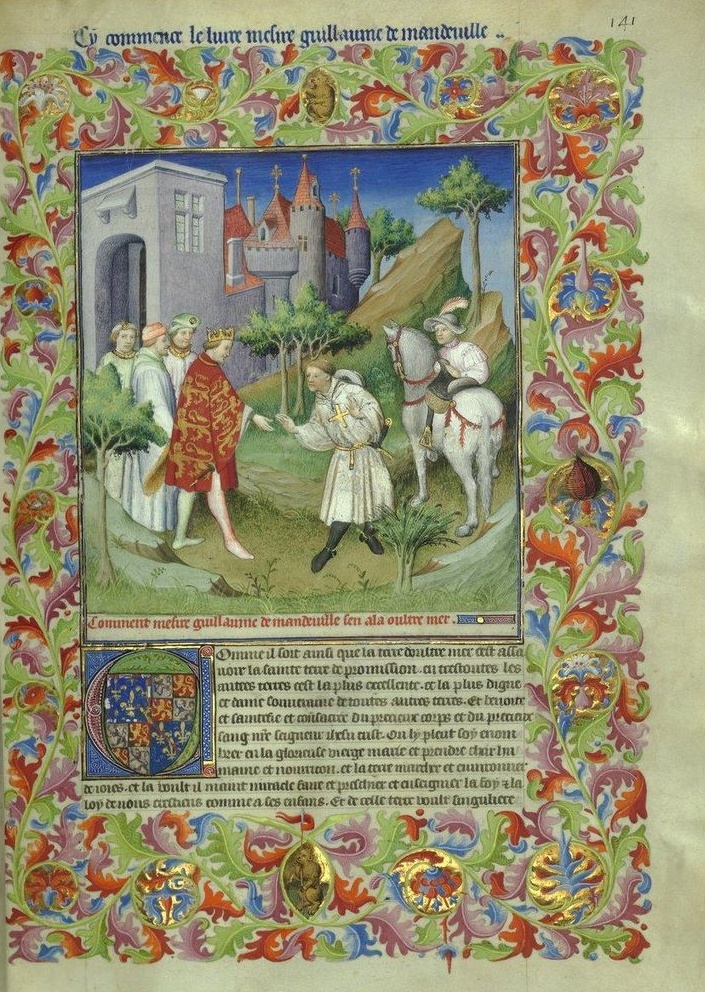 141
Cy commence le livre mesire guillaume de mandeville ..
Comment mesire guillaume de mandeville sen ala oultre mer .
Omme il soit ainsi que la terre doultre mer cest assa
voir la sainte terre de promission . en trestoutes les
autres terres cest la plus excellente . et la plus digne
et dame souveraine de toutes autres terres . Et benoite
et saintefie et consacree du precieux corps et du precieux
sang nre seigneur ihesu crist . Ou ly pleut soy enom
brer en la glorieuse vierge marie et prendre char hu
maine et nourricon . et la terre marchier et environner
de ioies . et la voult il maint miracle faire et preschier et enseignier la foy z la
loy de nous crestiens comme a ses enfans . Et de celle terre voult singuliere